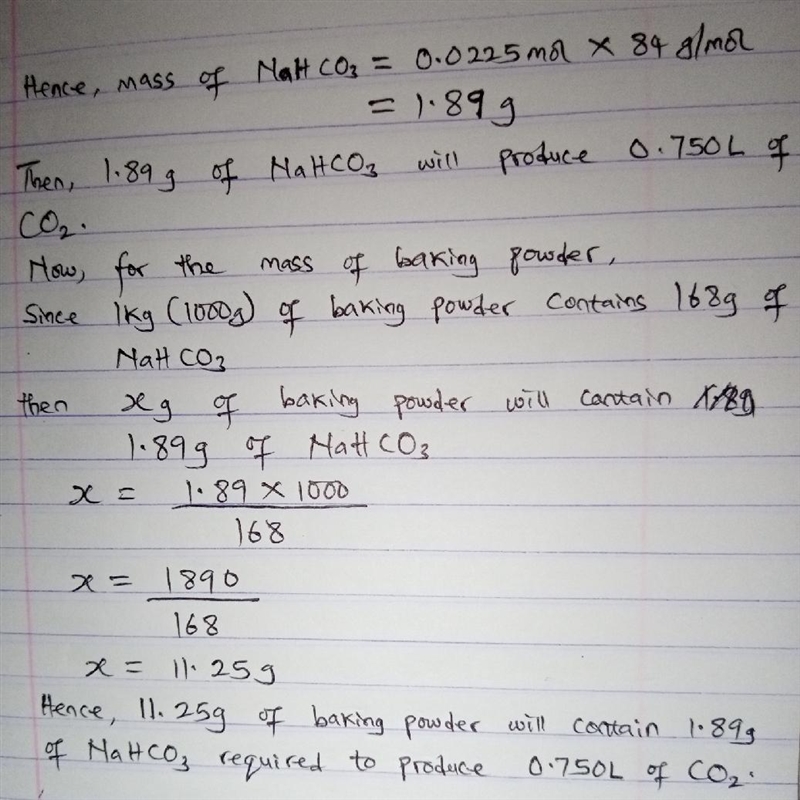 Hence, mass of NaHCO3 = 0.0225mol × 84 g/mol
= 1.89 g
Then, 1.89 g of NaHCO3 will produce 0.750L of
CO2.
Now, for the mass of baking powder,
Since 1kg (1000g) of baking powder contains 168g of
NaHCO3
then xg of baking powder will contain
1.89g of NaHCO3
x = 1.89 × 1000
168
x = 1890
168
x = 11.25g
Hence, 11.25g of baking powder will contain 1.89g
of NaHCO3 required to produce 0.750L of CO2.